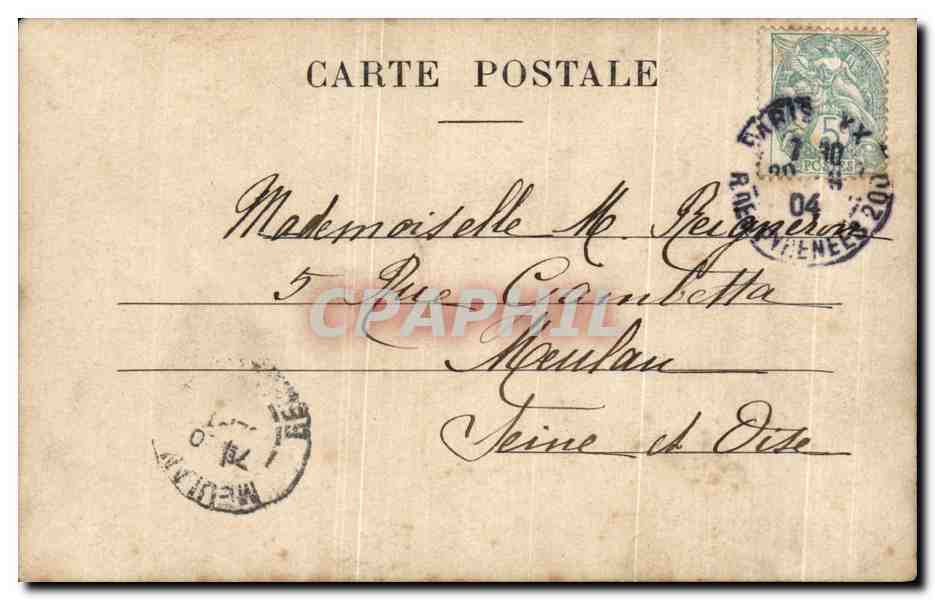 CARTE POSTALE
5
POSTES
PARIS XX
7 30
04
R. DES PYRENEES 200
Mademoiselle M. Reigneron
5 Rue Gambetta
CPAPHIL
Meulan
Seine et Oise
MEULAN